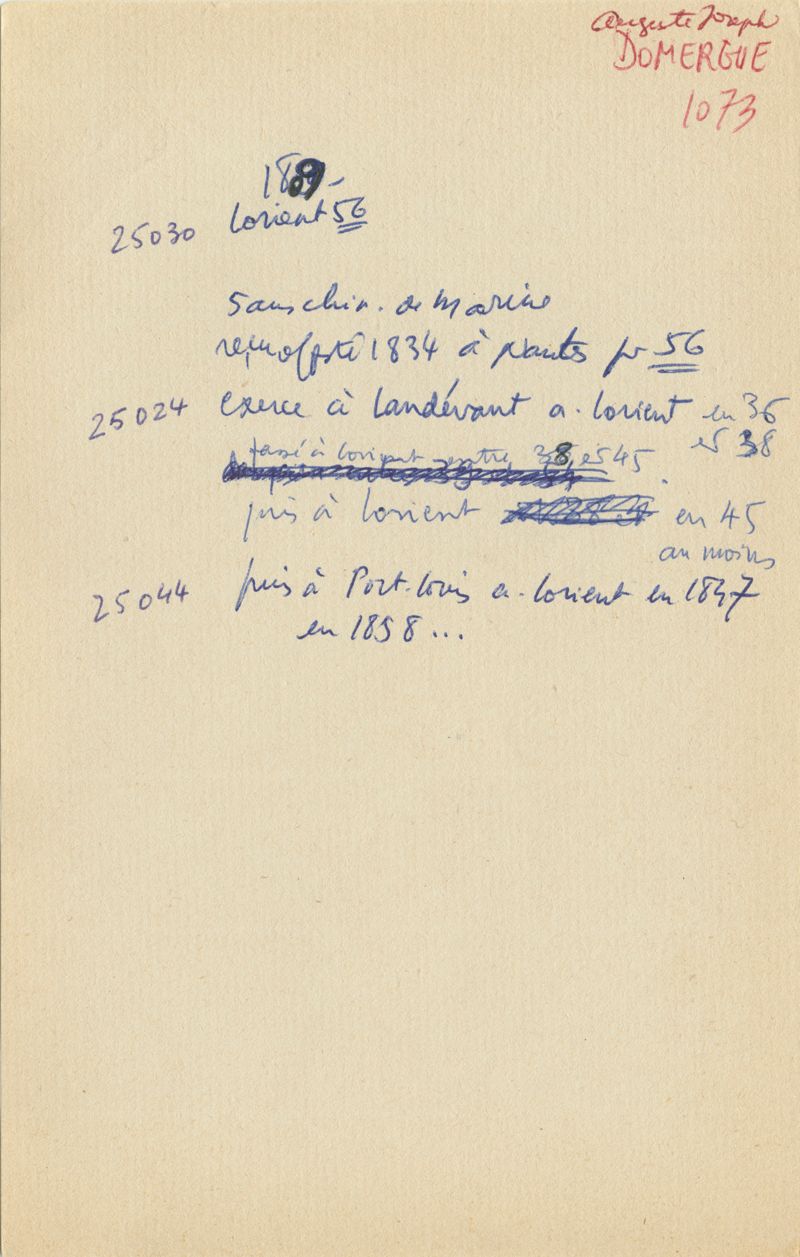 Auguste Joseph
DOMERGUE
1073
1809 -
25030 Lorient 56
sans chir. de Marine
reçu off sté 1834 à Nantes pr 56
25024 exerce à Landévant a. Lorient en 36
et 38
passé à Lorient entre 38 et 45
puis à Lorient en 45
au moins
25044 puis à Port-Louis a. Lorient en 1847
en 1858...